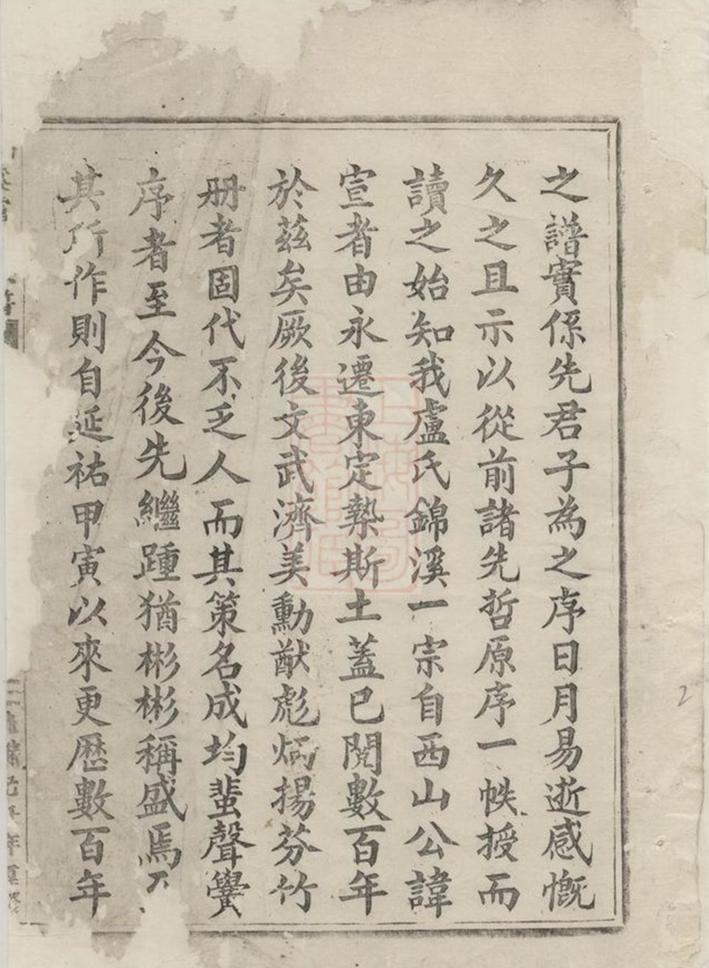 之譜實係先君子為之序日月易逝感慨
久之且示以從前諸先哲原序一帙授而
讀之始知我盧氏錦溪一宗自西山公諱
宣者由永遷東定墊斯土蓋已閱數百年
於茲矣厥後文武濟美勳猷彪炳揚芬竹
册者固代不乏人而其策名成均蜚聲黌
序者至今後先繼踵猶彬彬稱盛焉
其所作則自延祐甲寅以來更歷數百年